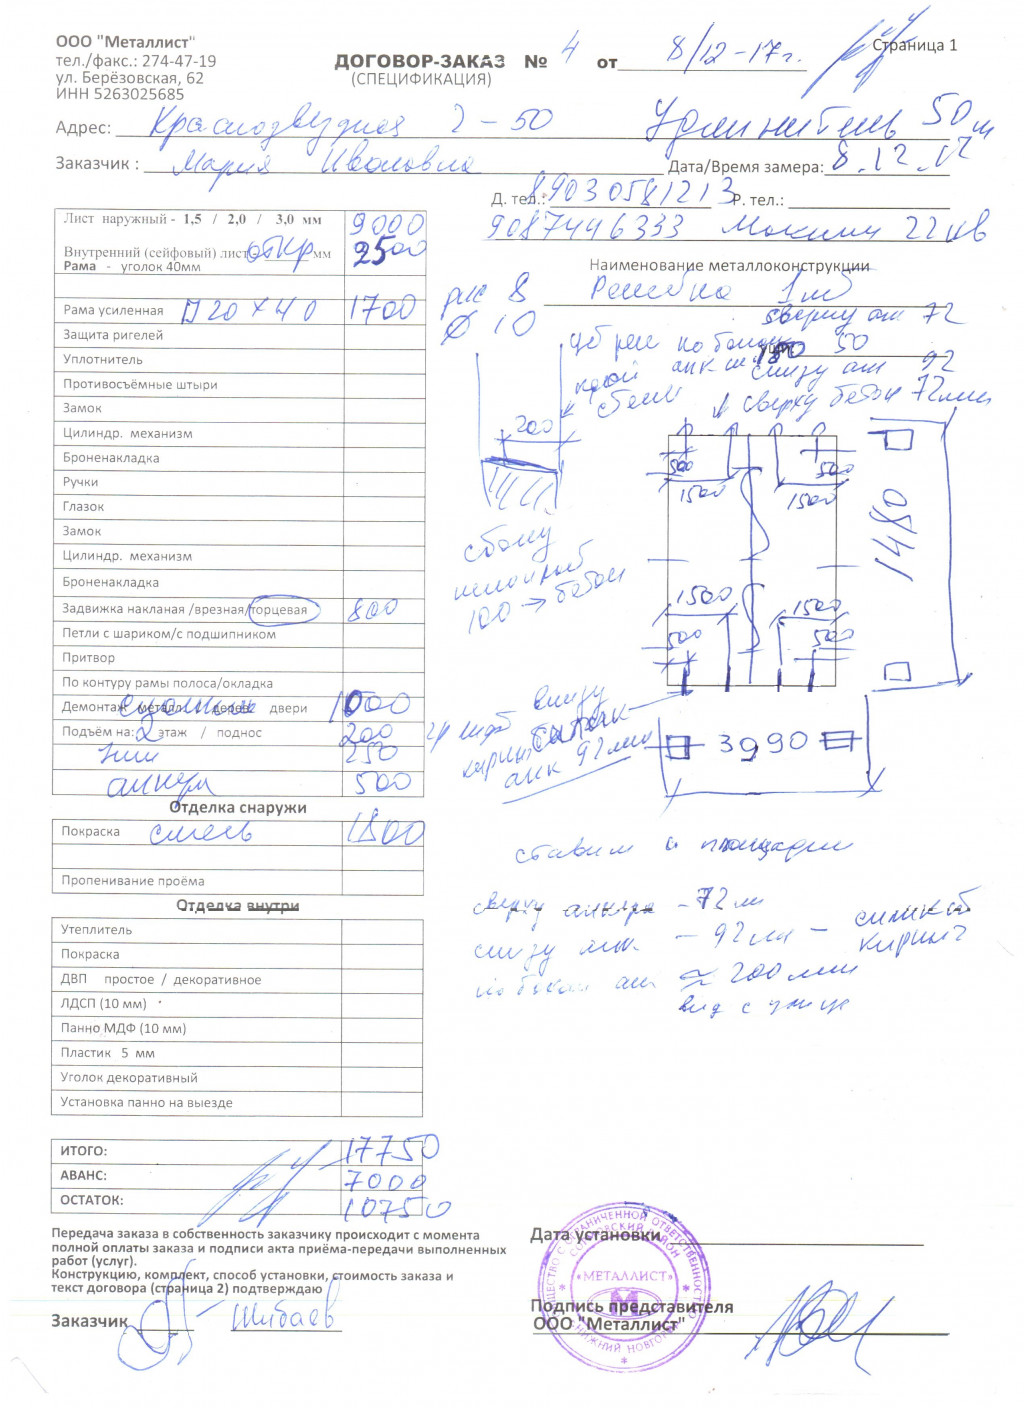 ООО "Металлист"
тел./факс.: 274-47-19
ул. Берёзовская, 62
ИНН 5263025685
ДОГОВОР-ЗАКАЗ № 4 от 8/12-17г.
(СПЕЦИФИКАЦИЯ)
Страница 1
Адрес: Краснозвездная 2-50 Удлинитель 50м
Заказчик : Мария Ивановна Дата/Время замера: 8.12.17
Д. тел.: 89030581213 Р. тел.:
9087446333 Максим 22 кв
Лист наружный - 1,5 / 2,0 / 3,0 мм 9000
Внутренний (сейфовый) лист откр мм 2500
Рама - уголок 40мм
Рама усиленная 20 х 40 1700
Защита ригелей
Уплотнитель
Противосъёмные штыри
Замок
Цилиндр. механизм
Броненакладка
Ручки
Глазок
Замок
Цилиндр. механизм
Броненакладка
Задвижка накланая /врезная/торцевая 800
Петли с шариком/с подшипником
Притвор
По контуру рамы полоса/окладка
Демонтаж металл. / дерев. двери 1000
Подъём на: 2 этаж / поднос 200
250
анкера 500
Отделка снаружи
Покраска смесь 1800
Пропенивание проёма
Отделка внутри
Утеплитель
Покраска
ДВП простое / декоративное
ЛДСП (10 мм)
Панно МДФ (10 мм)
Пластик 5 мм
Уголок декоративный
Установка панно на выезде
ИТОГО: 17750
АВАНС: 7000
ОСТАТОК: 10750
Наименование металлоконструкции
рис 8 Решетка
Ø 10
сверху анк 72
по бокам 50
снизу анк 92
сверху бетон 72мм
200
500 500
1500 1500
1480
сбоку
100 → бетон
1500 1500
500 500
внизу
силик
кирпич
анк 92мм
3990
ставим с площадки
сверху анкера - 72мм
снизу анк - 92мм - силикат
кирпич
по бокам анк ≈ 200мм
вид с улице
Передача заказа в собственность заказчику происходит с момента
полной оплаты заказа и подписи акта приёма-передачи выполненных
работ (услуг).
Конструкцию, комплект, способ установки, стоимость заказа и
текст договора (страница 2) подтверждаю
Заказчик Шибаев
Дата установки
Подпись представителя
ООО "Металлист"
ОБЩЕСТВО С ОГРАНИЧЕННОЙ ОТВЕТСТВЕННОСТЬЮ
СОРМОВСКИЙ РАЙОН
«МЕТАЛЛИСТ»
М
НИЖНИЙ НОВГОРОД